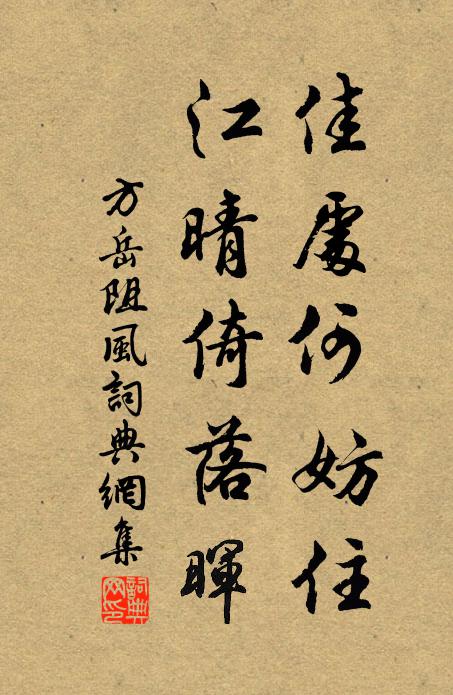 佳處何妨住
江晴倚落暉
方岳阻風詞典網集
詞典
网印